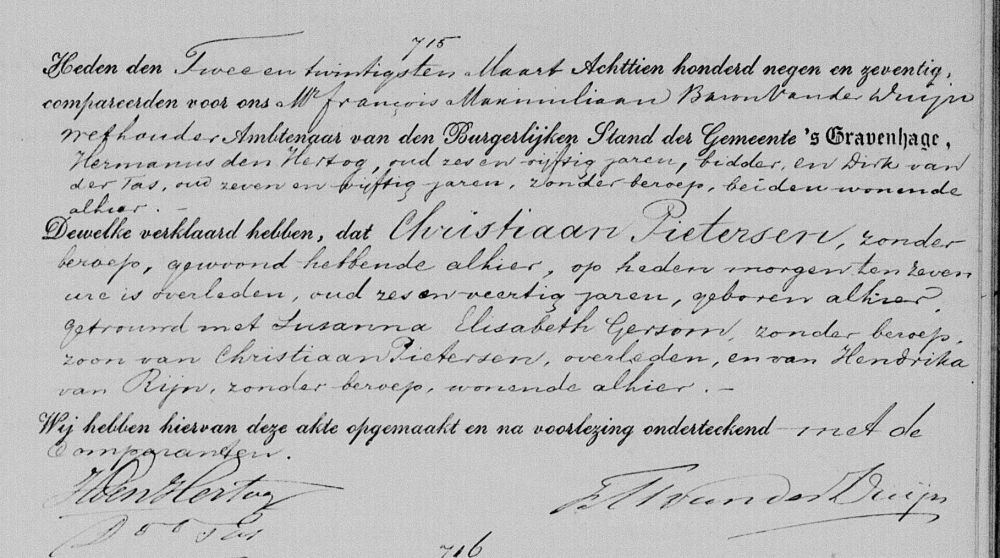 715
Heden den Twee en twintigsten Maart Achttien honderd negen en zeventig,
compareerden voor ons Mr françois Maximiliaan Baron Van der Duijn
wethouder Ambtenaar van den Burgerlijken Stand der Gemeente 's Gravenhage,
Hermanus den Hertog, oud zes en vijftig jaren, bidder, en Dirk van
der Tas, oud zeven en vijftig jaren, zonder beroep, beiden wonende
alhier. —
Dewelke verklaard hebben, dat Christiaan Pietersen, zonder
beroep, gewoond hebbende alhier, op heden morgen ten zeven
ure is overleden, oud zes en veertig jaren, geboren alhier,
getrouwd met Susanna Elisabeth Gersom, zonder beroep,
zoon van Christiaan Pietersen, overleden, en van Hendrika
van Rijn, zonder beroep, wonende alhier. —
Wij hebben hiervan deze akte opgemaakt en na voorlezing onderteekend met de
Comparanten.
HdenHertog FMvanderDuijn
Tas
716